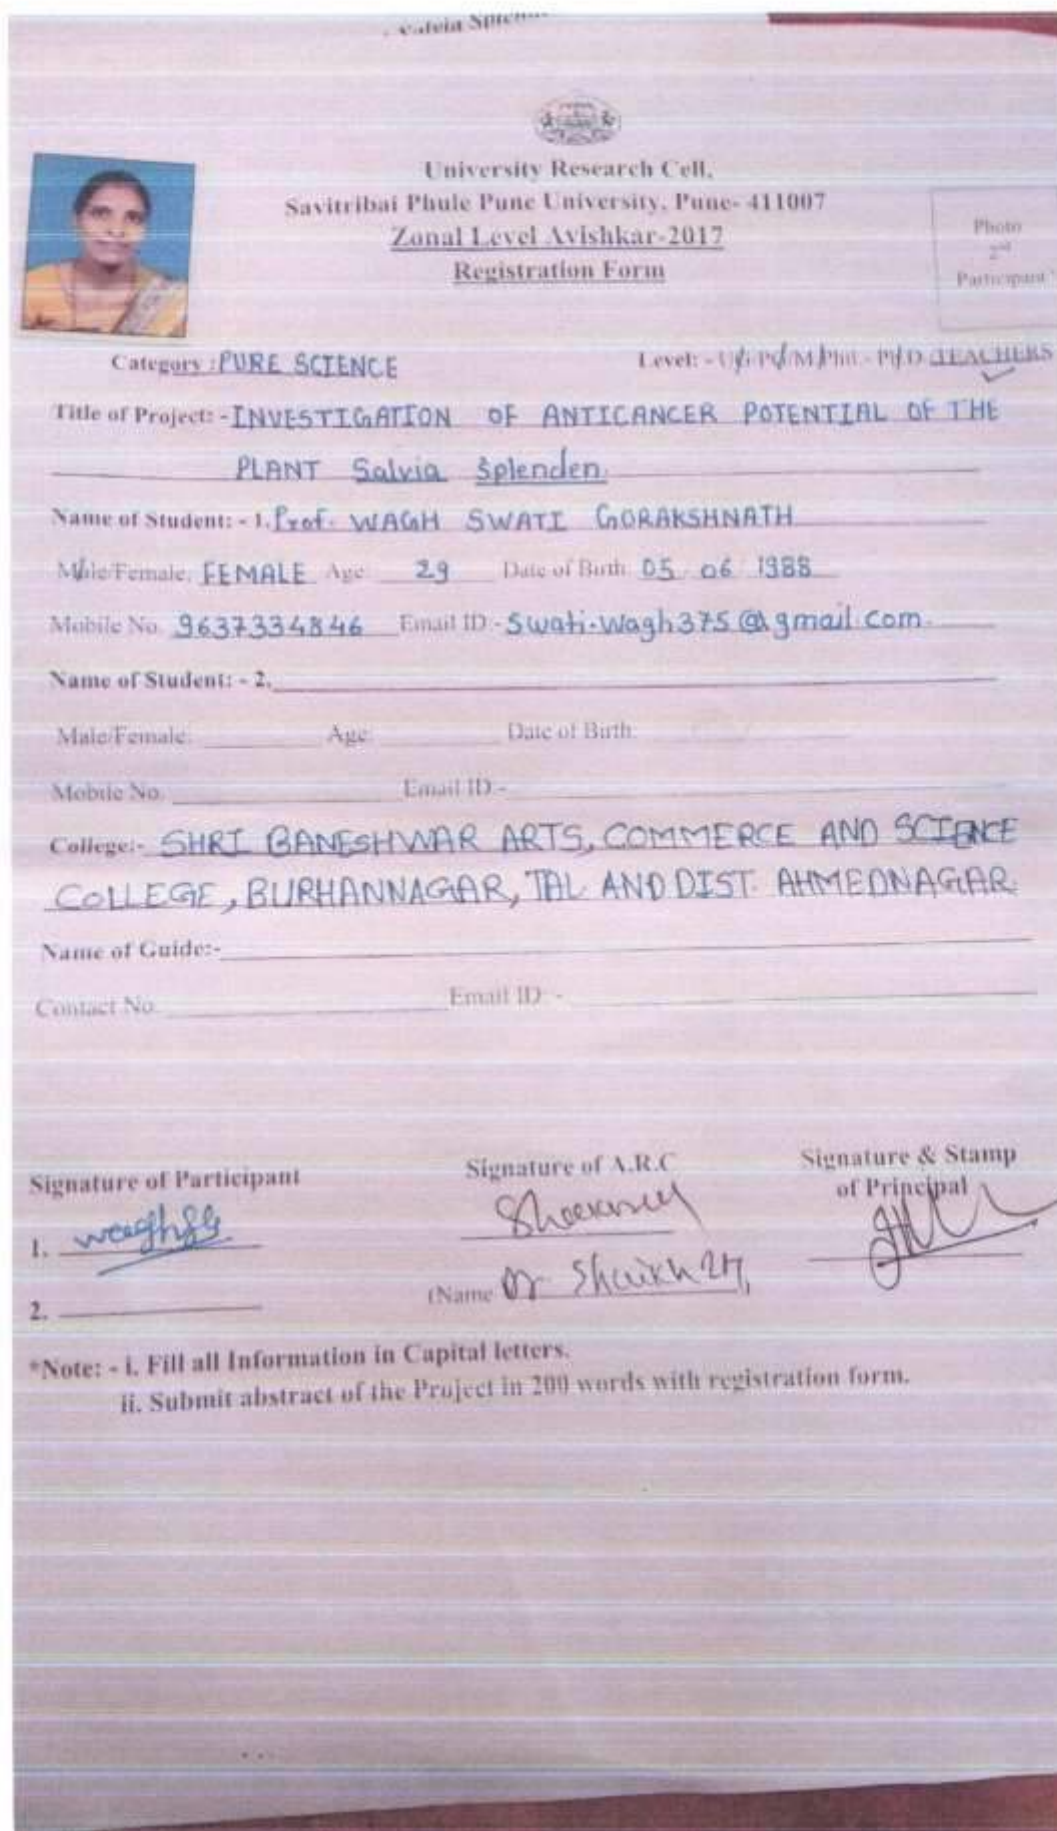 Salvia
University Research Cell,
Savitribai Phule Pune University, Pune- 411007
Zonal Level Avishkar-2017
Registration Form
Photo
2nd
Participant
Category : PURE SCIENCE Level: - UG/PG/M/Phil - Ph/D /TEACHERS
Title of Project: - INVESTIGATION OF ANTICANCER POTENTIAL OF THE
PLANT Salvia Splenden.
Name of Student: - 1. Prof. WAGH SWATI GORAKSHNATH
Male/Female. FEMALE Age 29 Date of Birth 05 06 1988
Mobile No. 9637334846 Email ID - Swati.wagh375@gmail.com.
Name of Student: - 2.
Male/Female. Age: Date of Birth:
Mobile No. Email ID -
College:- SHRI BANESHWAR ARTS, COMMERCE AND SCIENCE
COLLEGE, BURHANNAGAR, TAL AND DIST. AHMEDNAGAR.
Name of Guide:-
Contact No. Email ID -
Signature of Participant Signature of A.R.C Signature & Stamp
of Principal
1. waghsg
2.
(Name Dr Shaikh
*Note: - i. Fill all Information in Capital letters.
ii. Submit abstract of the Project in 200 words with registration form.